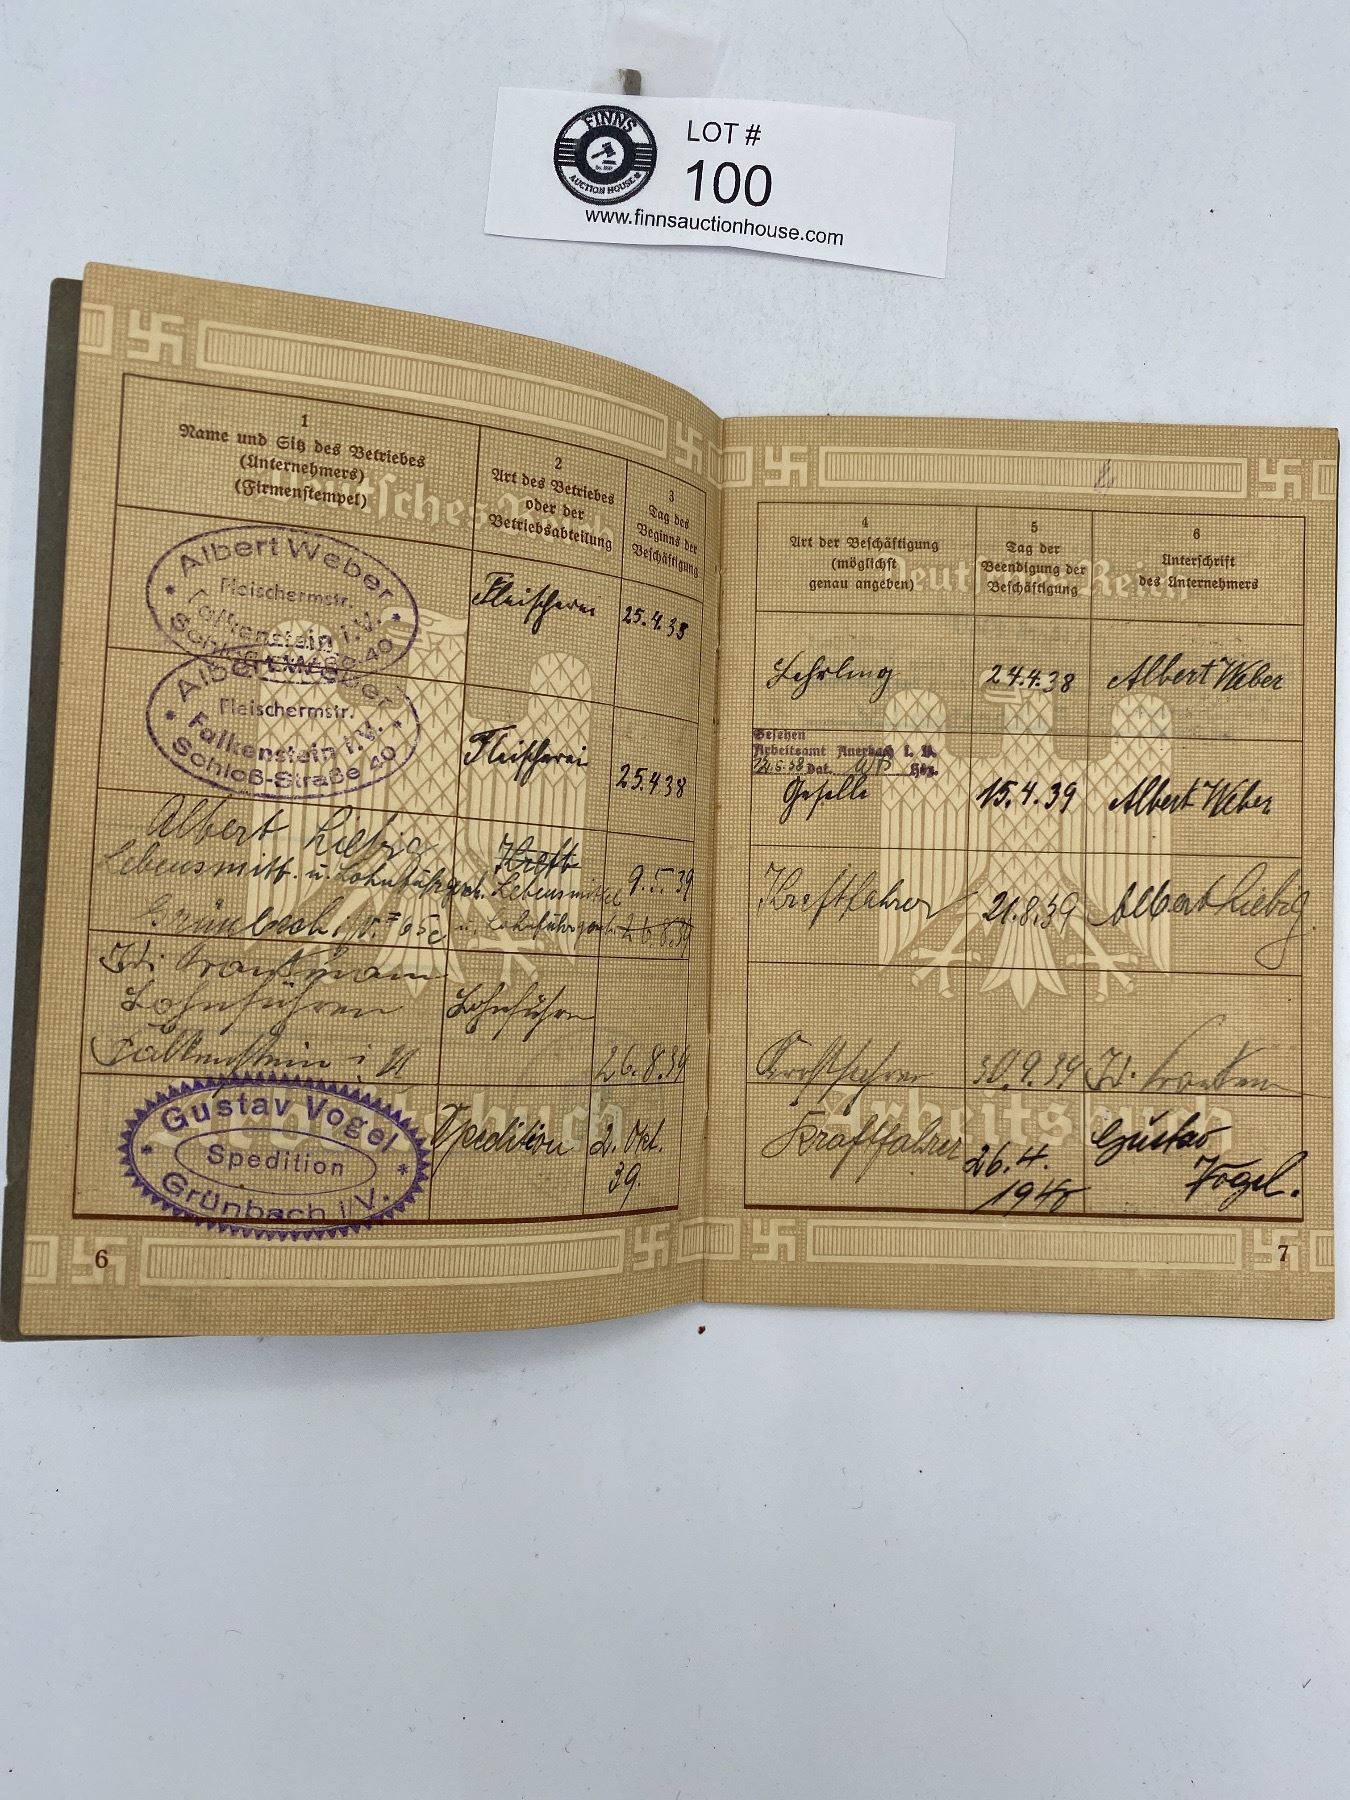 FINNS
AUCTION HOUSE
LOT #
100
www.finnsauctionhouse.com
Deutsches Reich
1
Name und Sitz des Betriebes
(Unternehmers)
(Firmenstempel)
2
Art des Betriebes
oder der
Betriebsabteilung
3
Tag des
Beginns der
Beschäftigung
Albert Weber
Fleischermstr.
Falkenstein i.V.
Schloß-Straße 40
Fleischerei
25.4.38
Albert Weber
Fleischermstr.
Falkenstein i.V.
Schloß-Straße 40
Fleischerei
25.4.38
Albert Liebig
Lebensmitt. u. Lohnfuhrgesch.
Grünbach i/V. # 65c
Kraft
Lebensmittel
u. Lohnfuhrgesch.
9.5.39
26.8.39
Lohnfuhren
Falkenstein i. V
Lohnfuhren
26.8.39
Arbeitsbuch
Gustav Vogel
Spedition
Grünbach i/V.
Spedition
2. Okt.
39.
6
Deutsches Reich
4
Art der Beschäftigung
(möglichst
genau angeben)
5
Tag der
Beendigung der
Beschäftigung
6
Unterschrift
des Unternehmers
Lehrling
24.4.38
Albert Weber
Gesehen
Arbeitsamt Auerbach i. V.
Dat. Hdz.
Geselle
15.4.39
Albert Weber
Kraftfahrer
21.8.39
Albert Liebig
Kraftfahrer
30.9.39
Arbeitsbuch
Kraftfahrer
26.4.
1940
Gustav
Vogel.
7